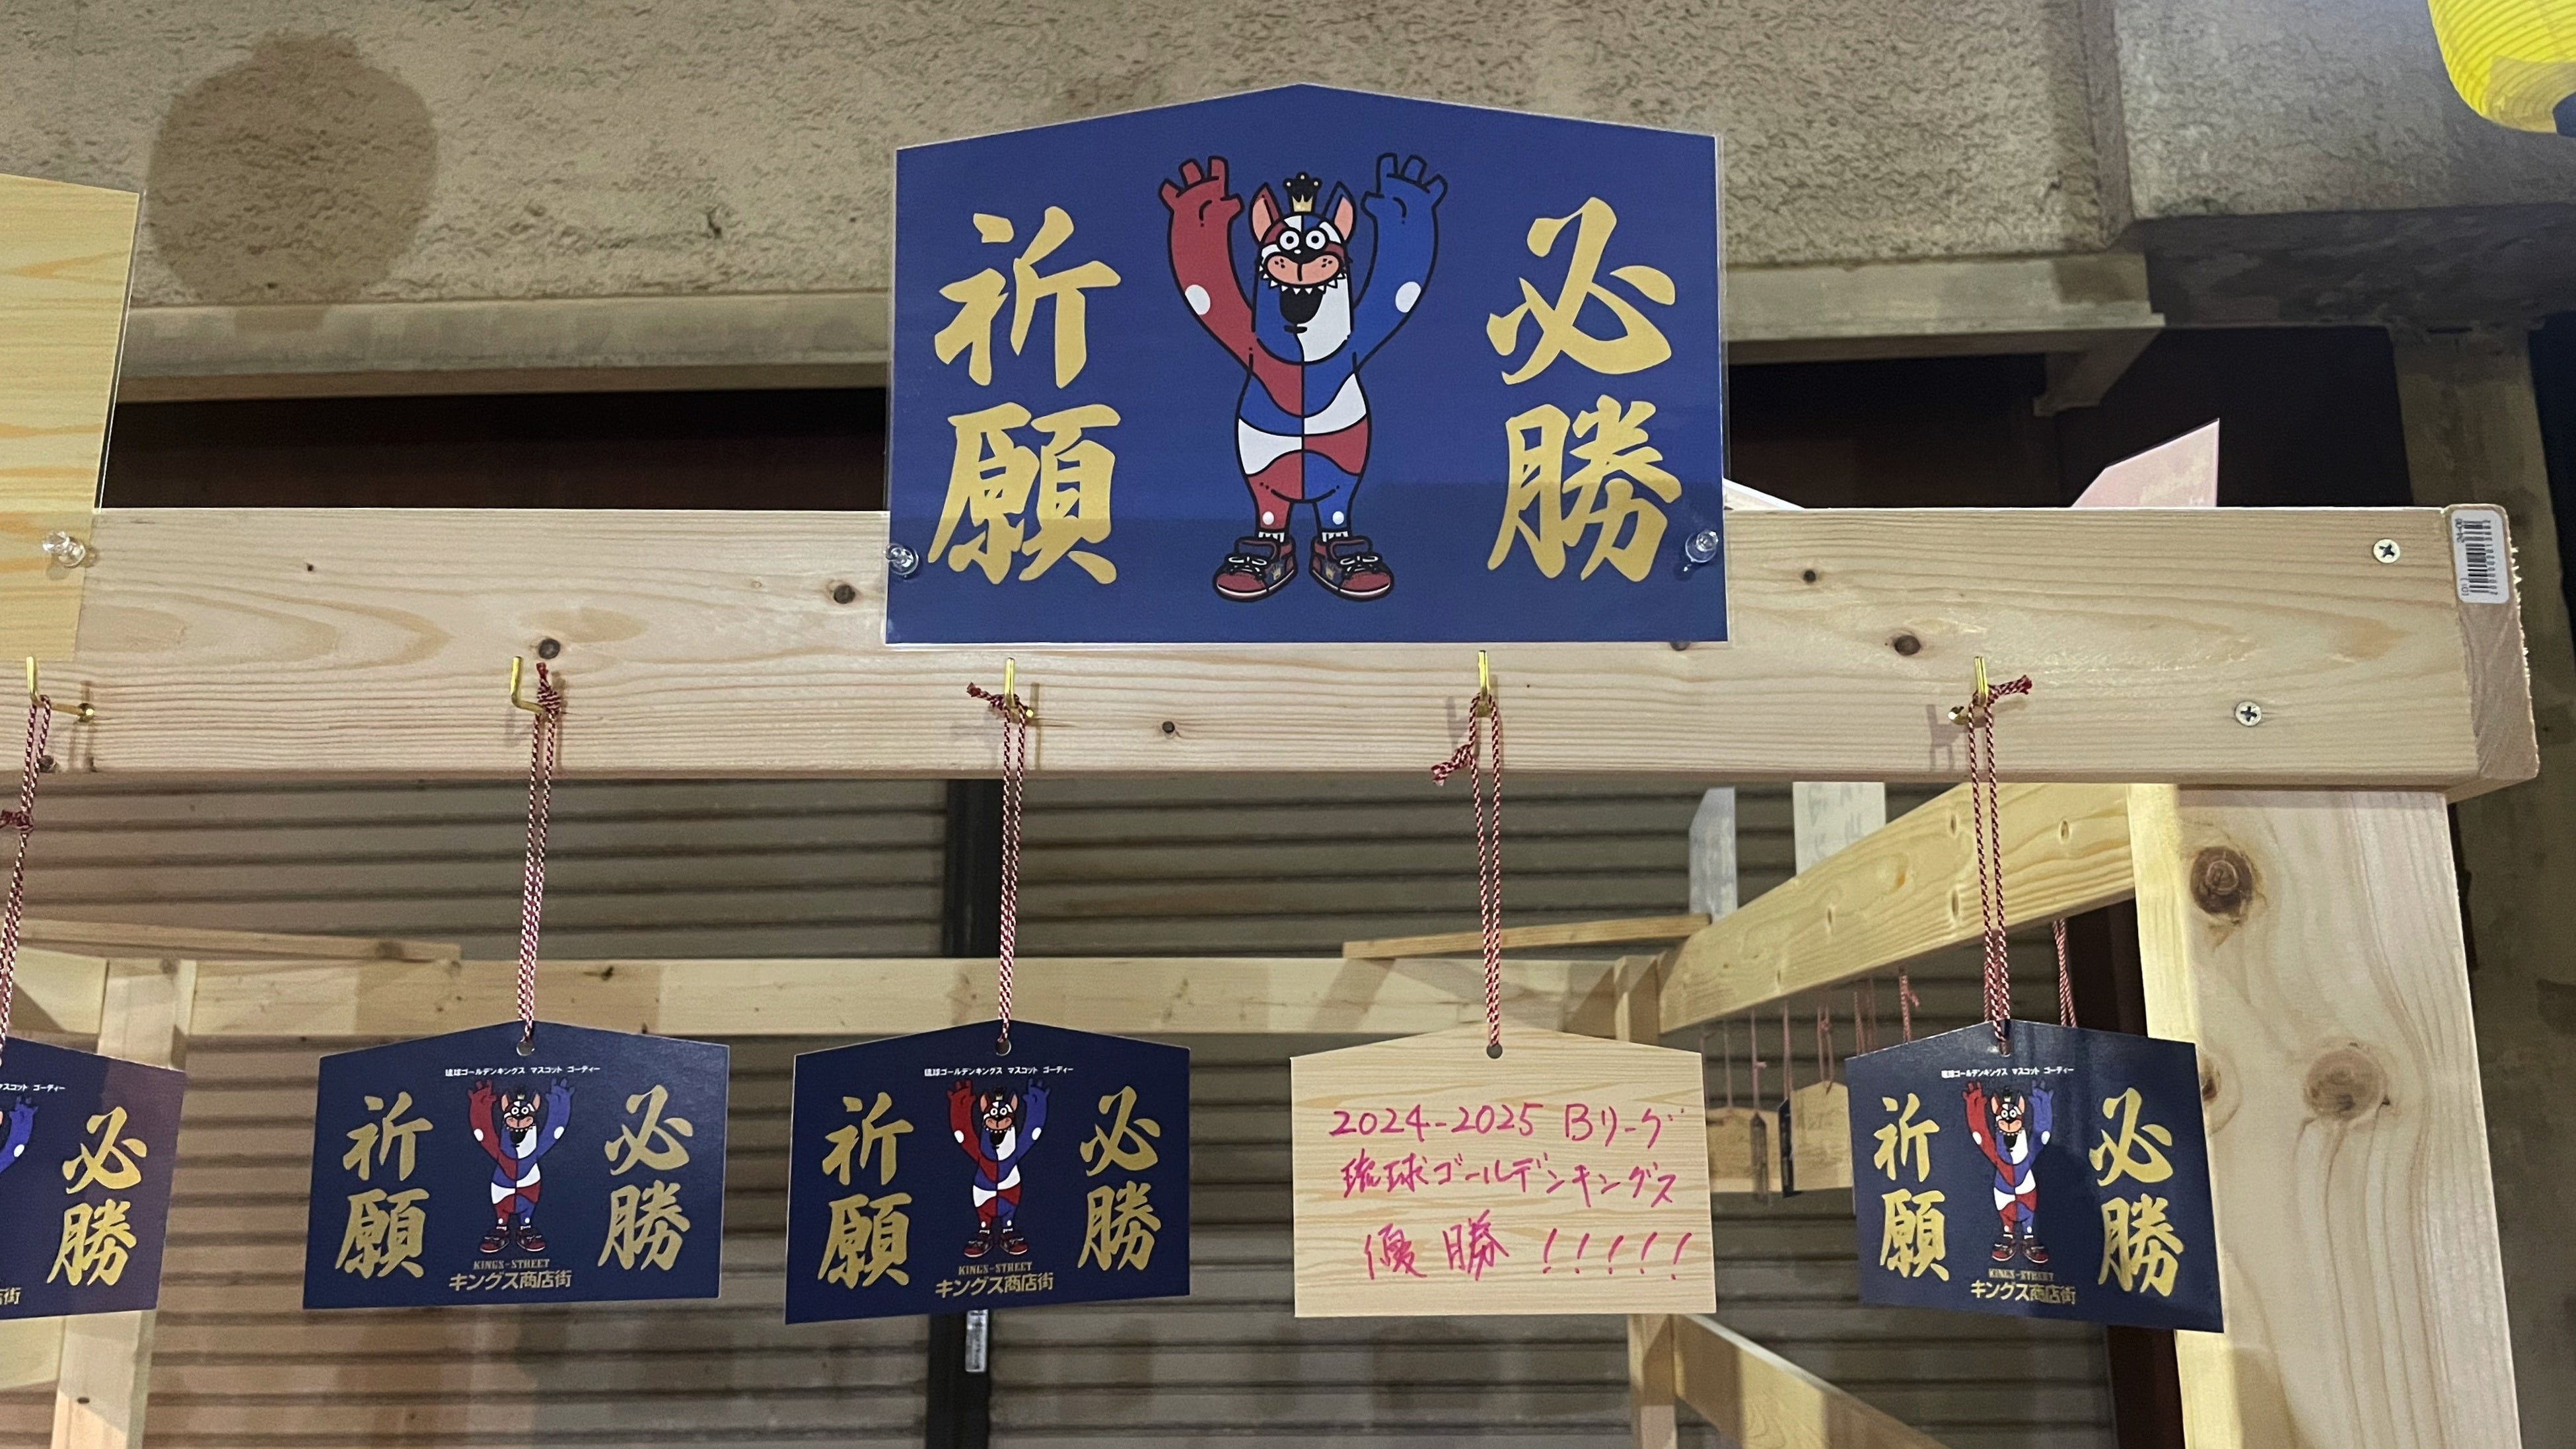 必勝
祈願
マスコット ゴーディー
必勝
店街
琉球ゴールデンキングス マスコット ゴーディー
必勝
祈願
KINGS-STREET
キングス商店街
琉球ゴールデンキングス マスコット ゴーディー
必勝
祈願
KINGS-STREET
キングス商店街
2024-2025 Bリーグ
琉球ゴールデンキングス
優勝!!!!!
琉球ゴールデンキングス マスコット ゴーディー
必勝
祈願
KINGS-STREET
キングス商店街